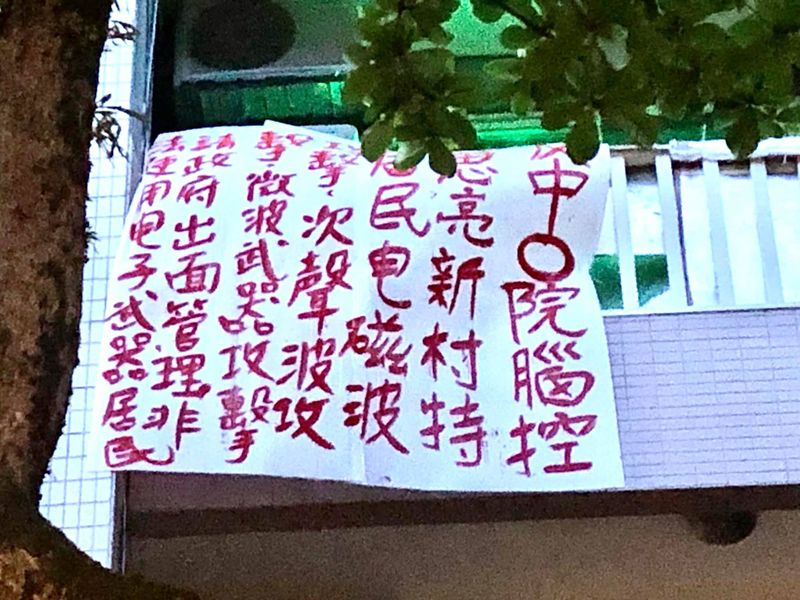 中〇院腦控
思亮新村特
居民电磁波
攻擊,次聲波攻
擊,微波武器攻擊
請政府出面管理非
法使用电子武器居民